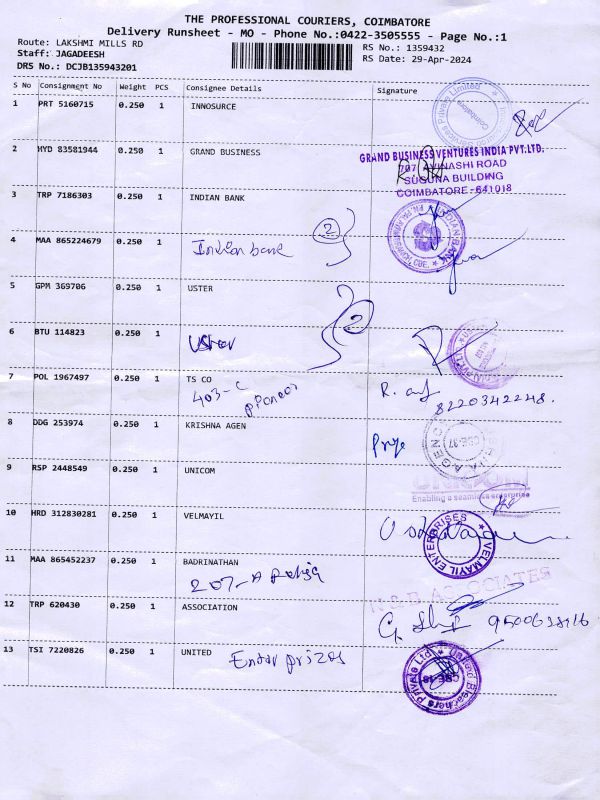 THE PROFESSIONAL COURIERS, COIMBATORE
Delivery Runsheet - MO - Phone No.:0422-3505555 - Page No.:1
Route: LAKSHMI MILLS RD
RS No.: 1359432
Staff: JAGADEESH
RS Date: 29-Apr-2024
DRS No.: DCJB135943201
S No Consignment No Weight PCS Consignee Details Signature
1 PRT 5160715 0.250 1 INNOSURCE
Private Limited
Coimbatore
2 HYD 83581944 0.250 1 GRAND BUSINESS
GRAND BUSINESS VENTURES INDIA PVT.LTD.
707, AVINASHI ROAD
SUGUNA BUILDING
COIMBATORE-641018
3 TRP 7186303 0.250 1 INDIAN BANK
INDIAN BANK
CBE.
4 MAA 865224679 0.250 1 Indian bank 2
5 GPM 369706 0.250 1 USTER
2
6 BTU 114823 0.250 1 Uster
7 POL 1967497 0.250 1 TS CO
403-C
8220342248.
8 DDG 253974 0.250 1 KRISHNA AGEN
CBE-37
9 RSP 2448549 0.250 1 UNICOM
Enabling a seamless enterprise
10 HRD 312830281 0.250 1 VELMAYIL
VELMAYIL ENTERPRISES
11 MAA 865452237 0.250 1 BADRINATHAN
207-A
ASSOCIATES
12 TRP 620430 0.250 1 ASSOCIATION
13 TSI 7220826 0.250 1 UNITED Enter prizes
United Bleachers Private Ltd